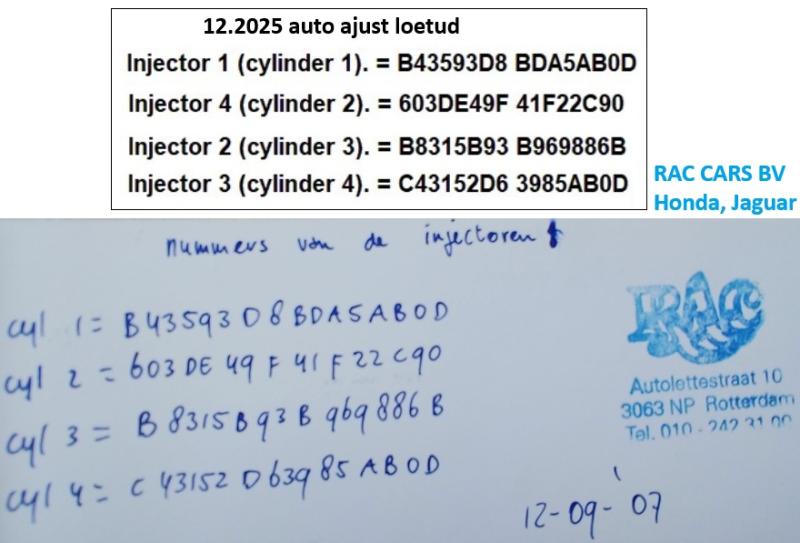 12.2025 auto ajust loetud
Injector 1 (cylinder 1). = B43593D8 BDA5AB0D
Injector 4 (cylinder 2). = 603DE49F 41F22C90
Injector 2 (cylinder 3). = B8315B93 B969886B
Injector 3 (cylinder 4). = C43152D6 3985AB0D
RAC CARS BV
Honda, Jaguar
nummers van de injectoren
cyl 1 = B43593D8BDA5AB0D
cyl 2 = 603DE49F41F22C90
cyl 3 = B8315B93B969886B
cyl 4 = C43152D63985AB0D
RAC
Autolettestraat 10
3063 NP Rotterdam
Tel. 010 - 242 31 00
12-09-'07